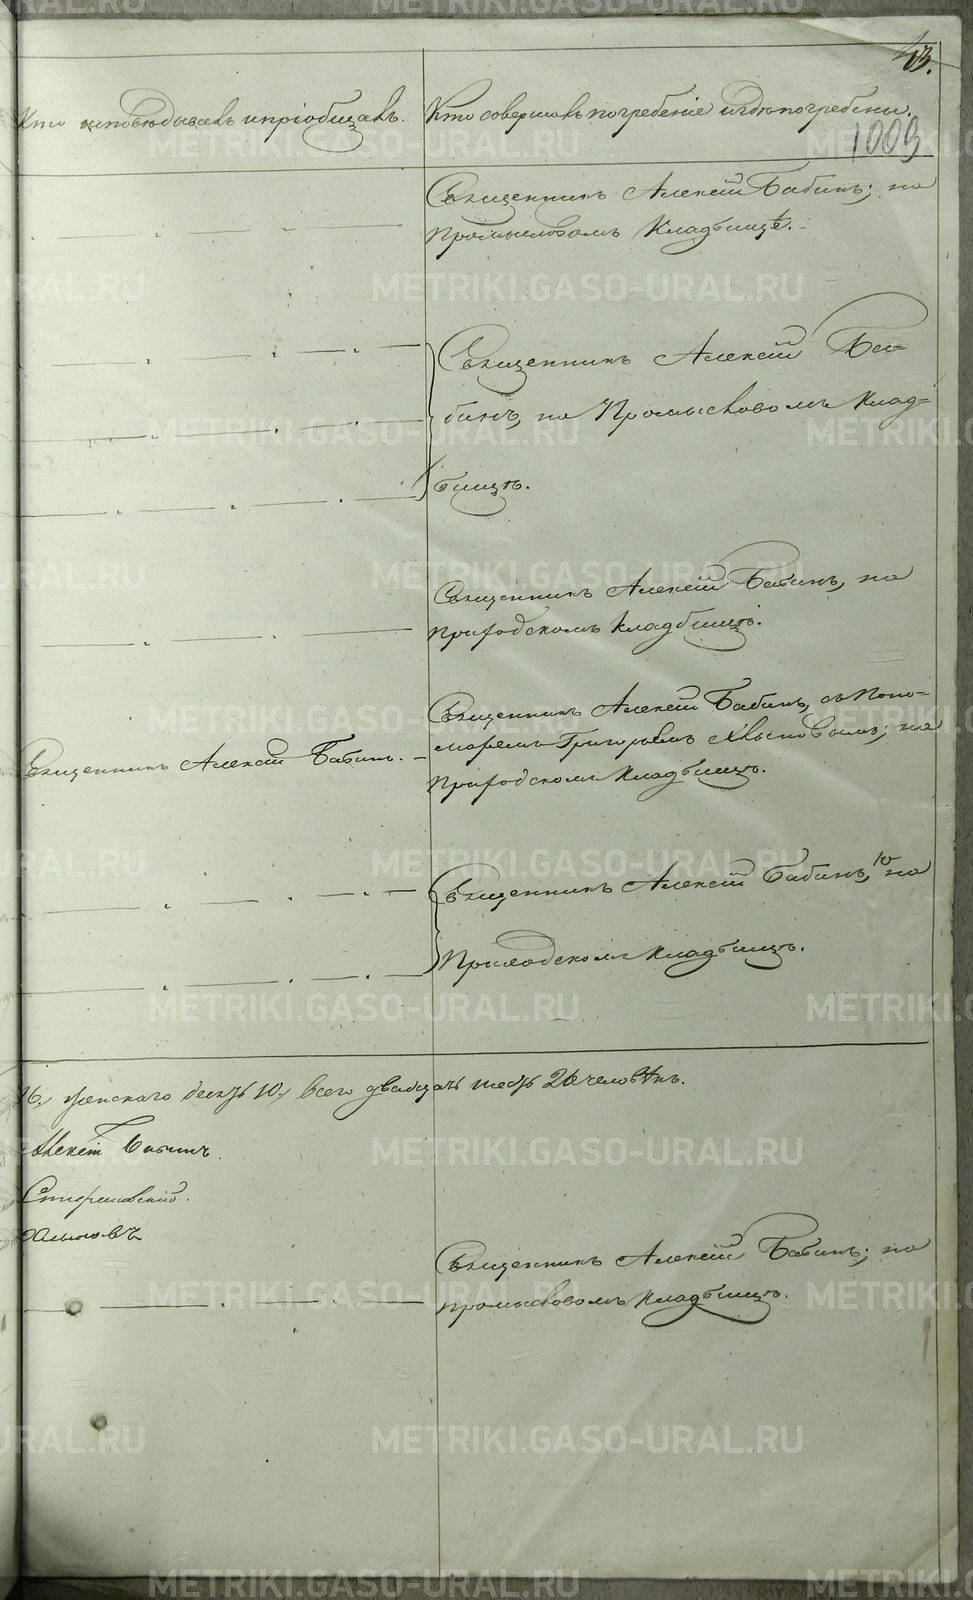 43.
Кто исповѣдывалъ и пріобщалъ.
Кто совершалъ погребеніе и гдѣ погребены.
1009
Священникъ Алексѣй Бабинъ; на
Промысловомъ Кладбищѣ.
Священникъ Алексѣй Ба=
бинъ, на Промысловомъ Клад=
бищѣ.
Священникъ Алексѣй Бабинъ, на
Приходскомъ кладбищѣ.
Священникъ Алексѣй Бабинъ.
Священникъ Алексѣй Бабинъ, съ Поно=
маремъ Григорьемъ Хлыновымъ; на
Приходскомъ Кладбищѣ.
Священникъ Алексѣй Бабинъ, на
Приходскомъ Кладбищѣ.
16., женскаго десять 10., всего двадцать шесть 26 человѣкъ.
Алексѣй Бабинъ
Хлыновъ
Священникъ Алексѣй Бабинъ; на
промысловомъ Кладбищѣ.
METRIKI.GASO-URAL.RU